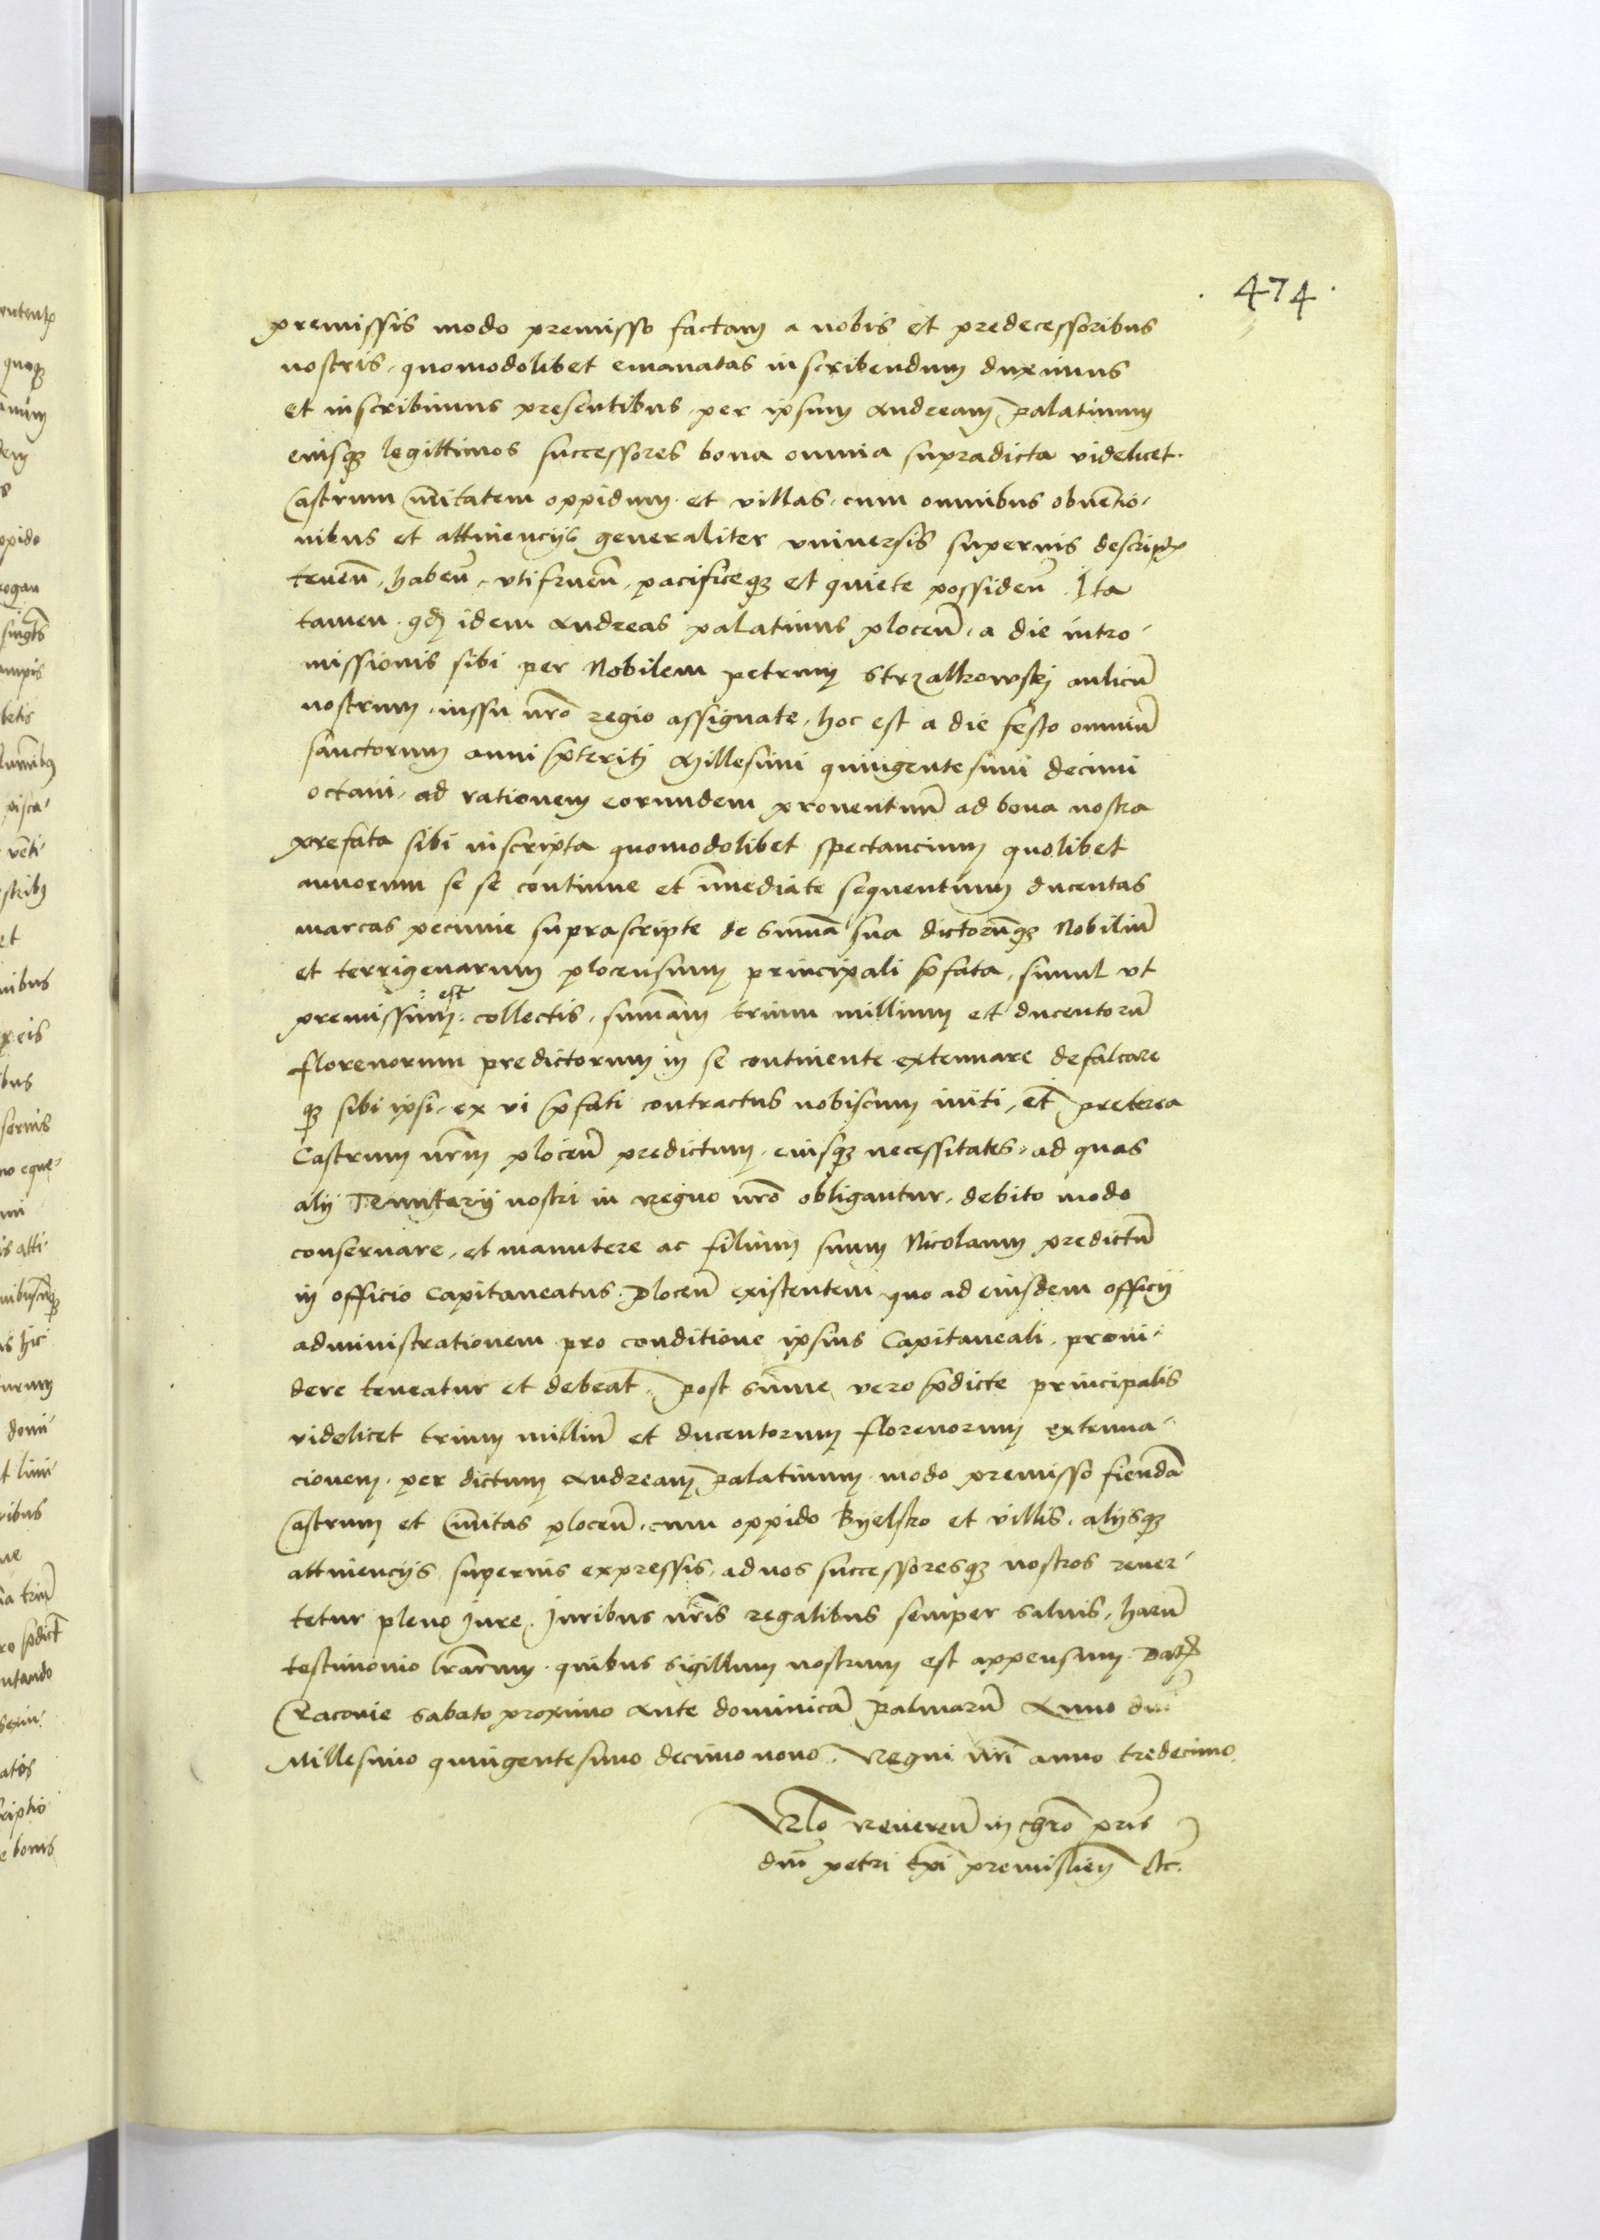 474
premissis modo premisso factam a nobis et predecessoribus
nostris, quomodolibet emanatas inscribendum duximus
et inscribimus presentibus, per ipsum Andream palatinum
eiusqꝫ legittimos successores bona omnia supradicta videlicet.
Castrum Ciuitatem oppidum et villas, cum omnibus obuentio-
nibus et attinencijs generaliter vniuersis superius descript
tenen̄, haben̄, vtifruen̄, pacificeqꝫ et quiete possiden̄. Ita
tamen qd idem Andreas palatinus plocen̄, a die intro-
missionis sibi per Nobilem petrum Strzalkowskj aulicū
nostrum, iussu nr̄o regio assignate, hoc est a die festo omniū
sanctorum anni p̄teritj Millesimi quingentesimi decimi
octaui, ad rationem eorundem prouentuū ad bona nostra
prefata sibi inscripta quomodolibet spectancium quolibet
annorum se se continue et īmediate sequentium ducentas
marcas pecunie suprascripte de sum̄a sua dictorūqꝫ Nobiliū
et terrigenarum plocensium principali p̄fata, simul vt
premissum : est collectis, sum̄am trium millium et ducentorū
florenorum predictorum in se continente extenuare defalcare
qꝫ sibi ipsi, ex vi p̄fati contractus nobiscum initi, et preterea
Castrum nr̄m plocen̄ predictum, eiusqꝫ necessitates, ad quas
alij Tenutarij nostri in regno nr̄o obligantur, debito modo
conseruare, et manutere ac filium suum Nicolaum predictū
in officio Capitaneatus Plocen̄ existentem quo ad eiusdem officij
administrationem pro conditione ipsius Capitaneali, proui-
dere teneatur et debeat, post sum̄e vero p̄dicte principalis
videlicet trium milliū et ducentorum florenorum extenua-
cionem, per dictum Andream palatinum modo premisso fiendā
Castrum et Ciuitas plocen̄, cum oppido Byelsko et villis, alijsqꝫ
attinencijs superius expressis, ad nos successoresqꝫ nostros reuer-
tetur pleno Jure, Juribus nr̄is regalibus semper saluis, harū
testimonio lr̄arum, quibus sigillum nostrum est appensum. Dat
Cracouie sabato proximo Ante dominicā palmarū Anno dnī
Millesimo quingentesimo decimo nono, Regni nrī anno tredecimo.
Rlo Reueren̄ in chr̄o pr̄is
dnī petri Epī premislien̄ etc.